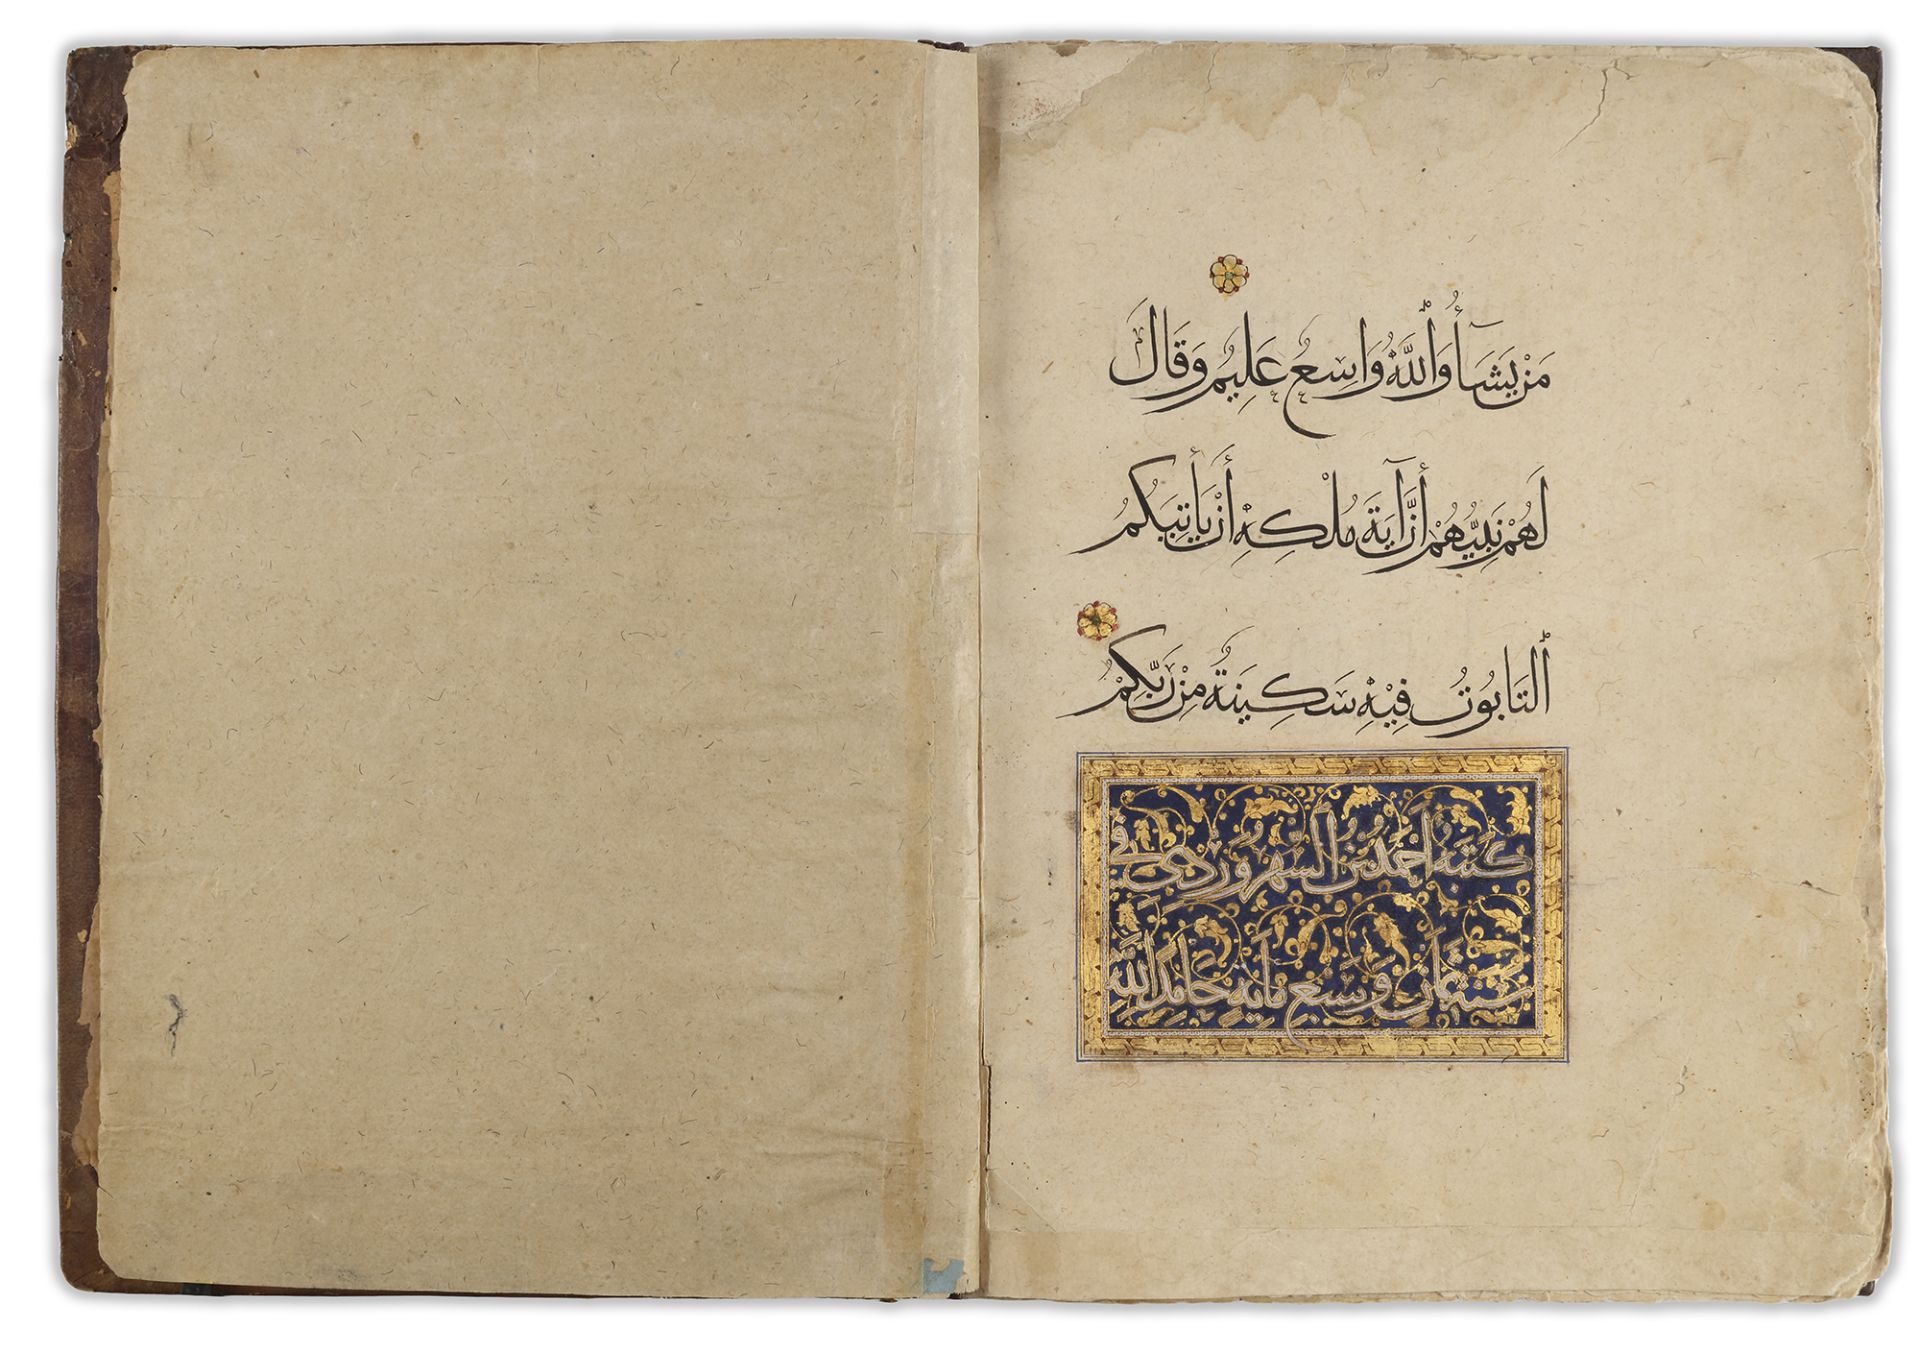 مَنْ يَشَآأُ وَٱللَّهُ وَاسِعٌ عَلِيمٌ وَقَالَ
لَهُمْ نَبِيُّهُمْ أَنَّ آيَةَ مُلْكِهِ أَنْ يَأْتِيَكُمُ
ٱلتَابُوتُ فِيْهِ سَكِينَةٌ مِنْ رَبِّكُمْ
كَتَبَهُ أَحْمَدُ بْنُ السُّهْرَوَرْدِيِّ فِي
سَنَةِ ثَمَانٍ وَسَبْعِ مِايَةٍ حَامِدًا لِلَّهِ